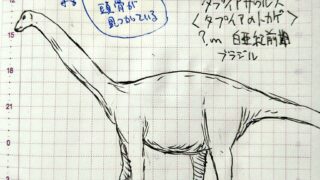 頭骨が
見つかっている
タプイアサウルス
<タプイアのトカゲ>
?m 白亜紀前期
ブラジル
15
12
9
6
3